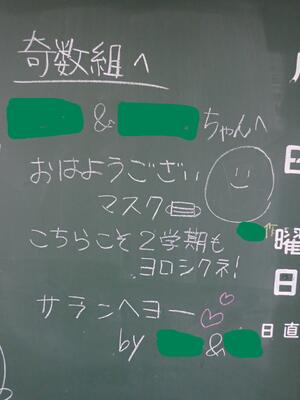 奇数組へ
& ちゃんへ
おはようござい
マスク
こちらこそ2学期も
ヨロシクネ!
サランヘヨー
by &
日
曜
日
日直